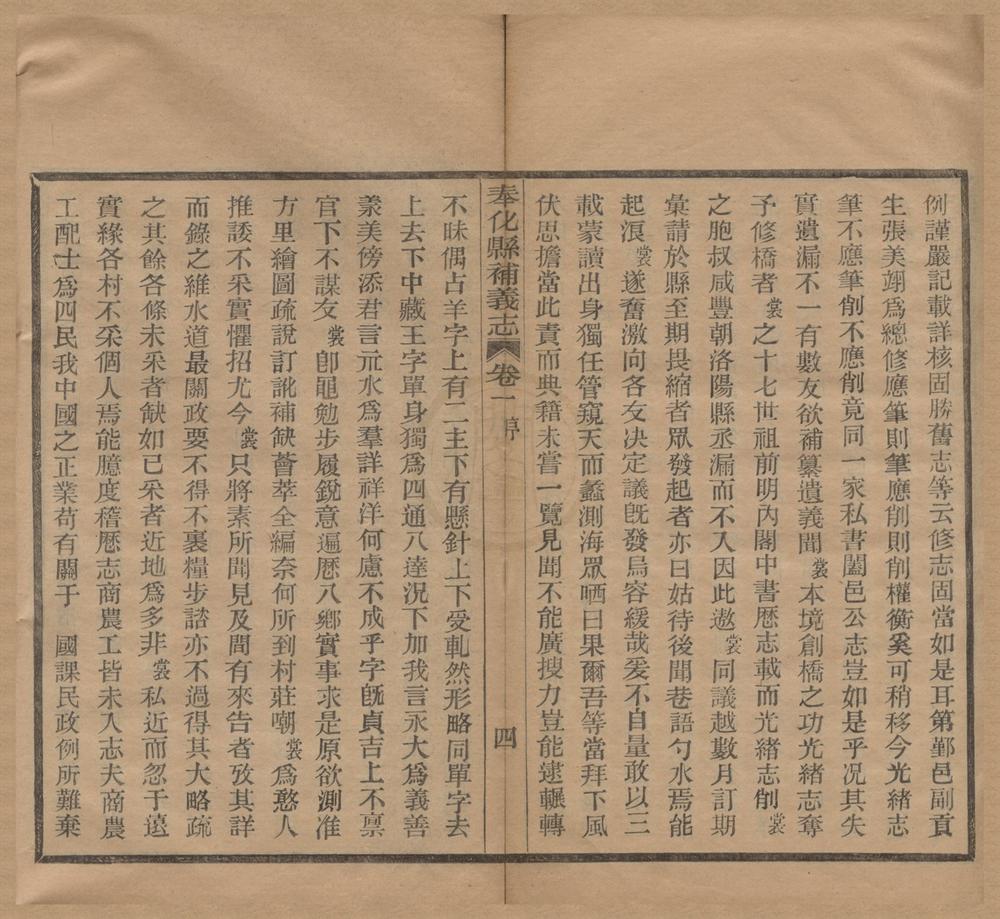 例謹嚴記載詳核固勝舊志等云修志固當如是耳第鄞邑副貢
生張美翊爲總修應筆則筆應削則削權衡奚可稍移今光緒志
筆不應筆削不應削竟同一家私書闔邑公志豈如是乎况其失
實遺漏不一有數友欲補纂遺義聞裳本境創橋之功光緒志奪
予修橋者裳之十七世祖前明內閣中書歷志載而光緒志削裳
之胞叔咸豐朝洛陽縣丞漏而不入因此邀裳同議越數月訂期
彙請於縣至期畏縮者眾發起者亦曰姑待後聞巷語勺水焉能
起浪裳遂奮激向各友决定議旣發烏容緩哉爰不自量敢以三
載蒙讀出身獨任管窺天而蠡測海眾哂曰果爾吾等當拜下風
伏思擔當此責而典籍未嘗一覽見聞不能廣搜力豈能逮輾轉
奉化縣補義志 卷一 序 四
不昧偶占羊字上有二主下有懸針上下受軋然形略同單字去
上去下中藏王字單身獨爲四通八達況下加我言永大爲義善
羕美傍添君言元水爲羣詳祥洋何慮不成乎字旣貞吉上不禀
官下不謀友裳卽黽勉步履銳意遍歷八鄉實事求是原欲測准
方里繪圖疏說訂訛補缺薈萃全編奈何所到村莊嘲裳爲憨人
推諉不采實懼招尤今裳只將素所聞見及間有來告者攷其詳
而錄之維水道最關政要不得不裹糧步諮亦不過得其大略疏
之其餘各條未采者缺如已采者近地爲多非裳私近而忽于遠
實緣各村不采個人焉能臆度稽歷志商農工皆未入志夫商農
工配士爲四民我中國之正業苟有關于 國課民政例所難棄